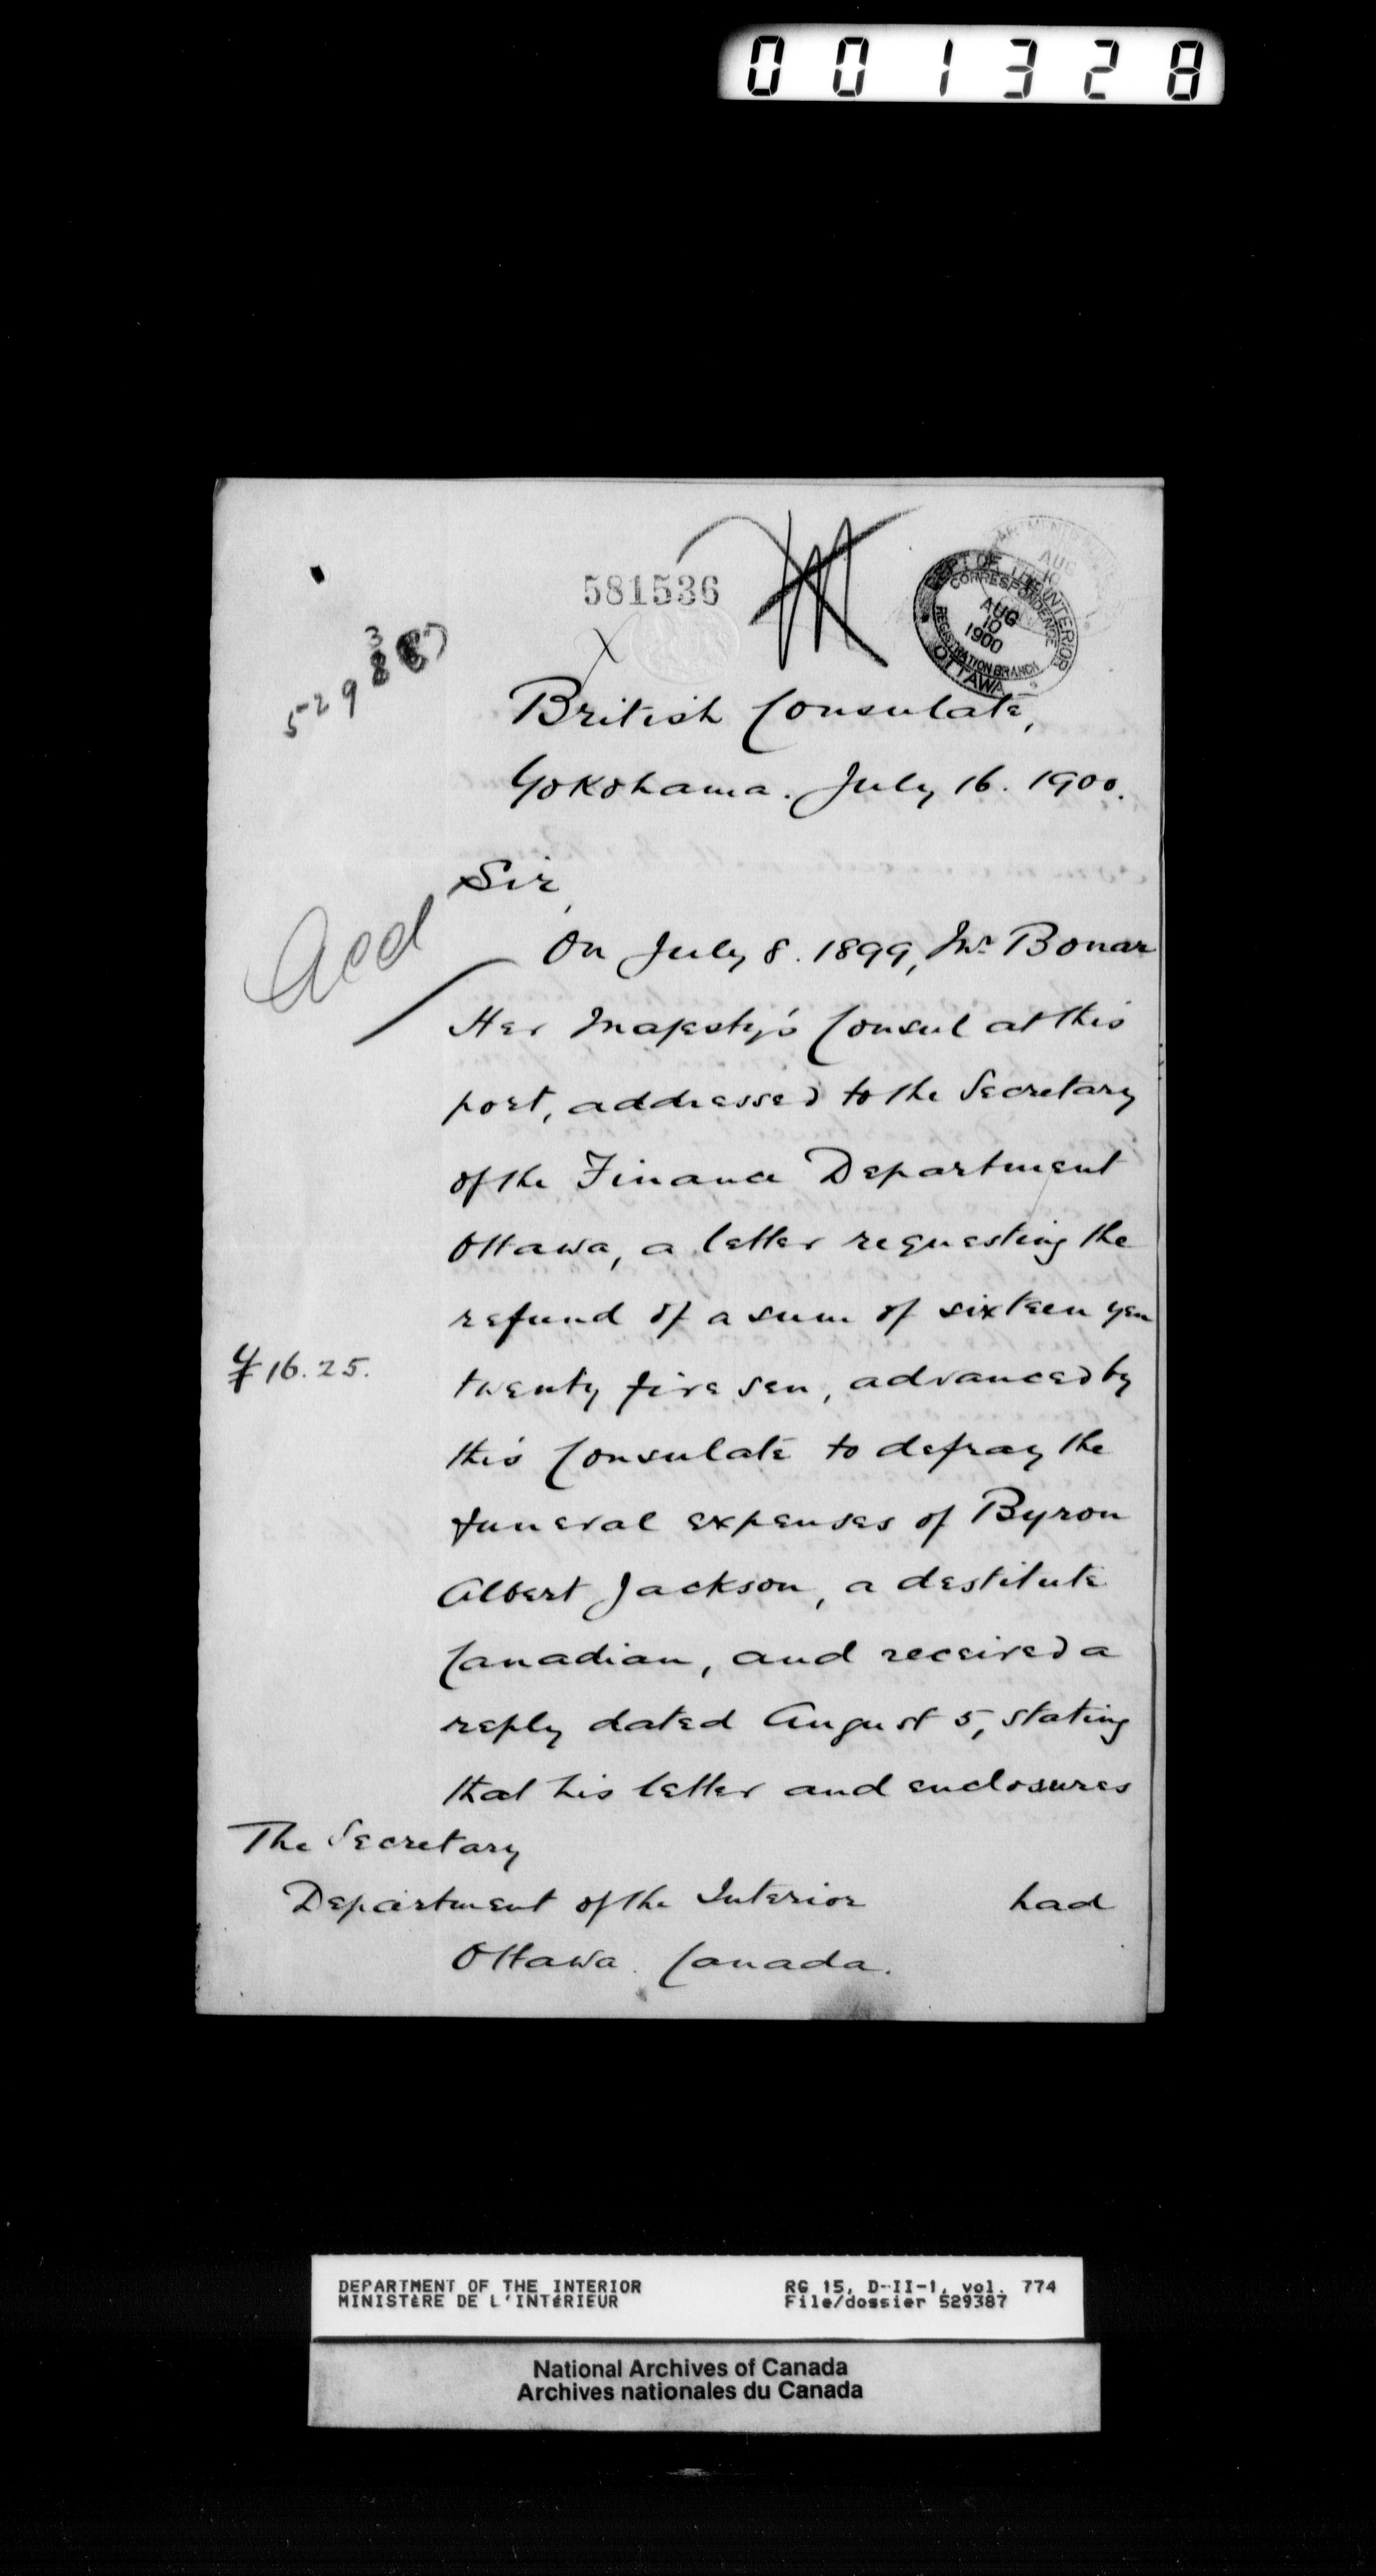 001328
581536
DEPT. OF THE INTERIOR
CORRESPONDENCE
AUG
10
1900
REGISTRATION BRANCH
OTTAWA
AUG
10
5293
X
British Consulate,
Yokohama. July 16. 1900.
Sir,
Acd
On July 8. 1899, Mr. Bonar
Her Majesty's Consul at this
port, addressed to the Secretary
of the Finance Department
Ottawa, a letter requesting the
refund of a sum of sixteen yen
¥16.25.
twenty five sen, advanced by
this Consulate to defray the
funeral expenses of Byron
Albert Jackson, a destitute
Canadian, and received a
reply dated August 5, stating
that his letter and enclosures
The Secretary
Department of the Interior
had
Ottawa. Canada.
DEPARTMENT OF THE INTERIOR
MINISTèRE DE L'INTéRIEUR
RG 15, D-II-1, vol. 774
File/dossier 529387
National Archives of Canada
Archives nationales du Canada